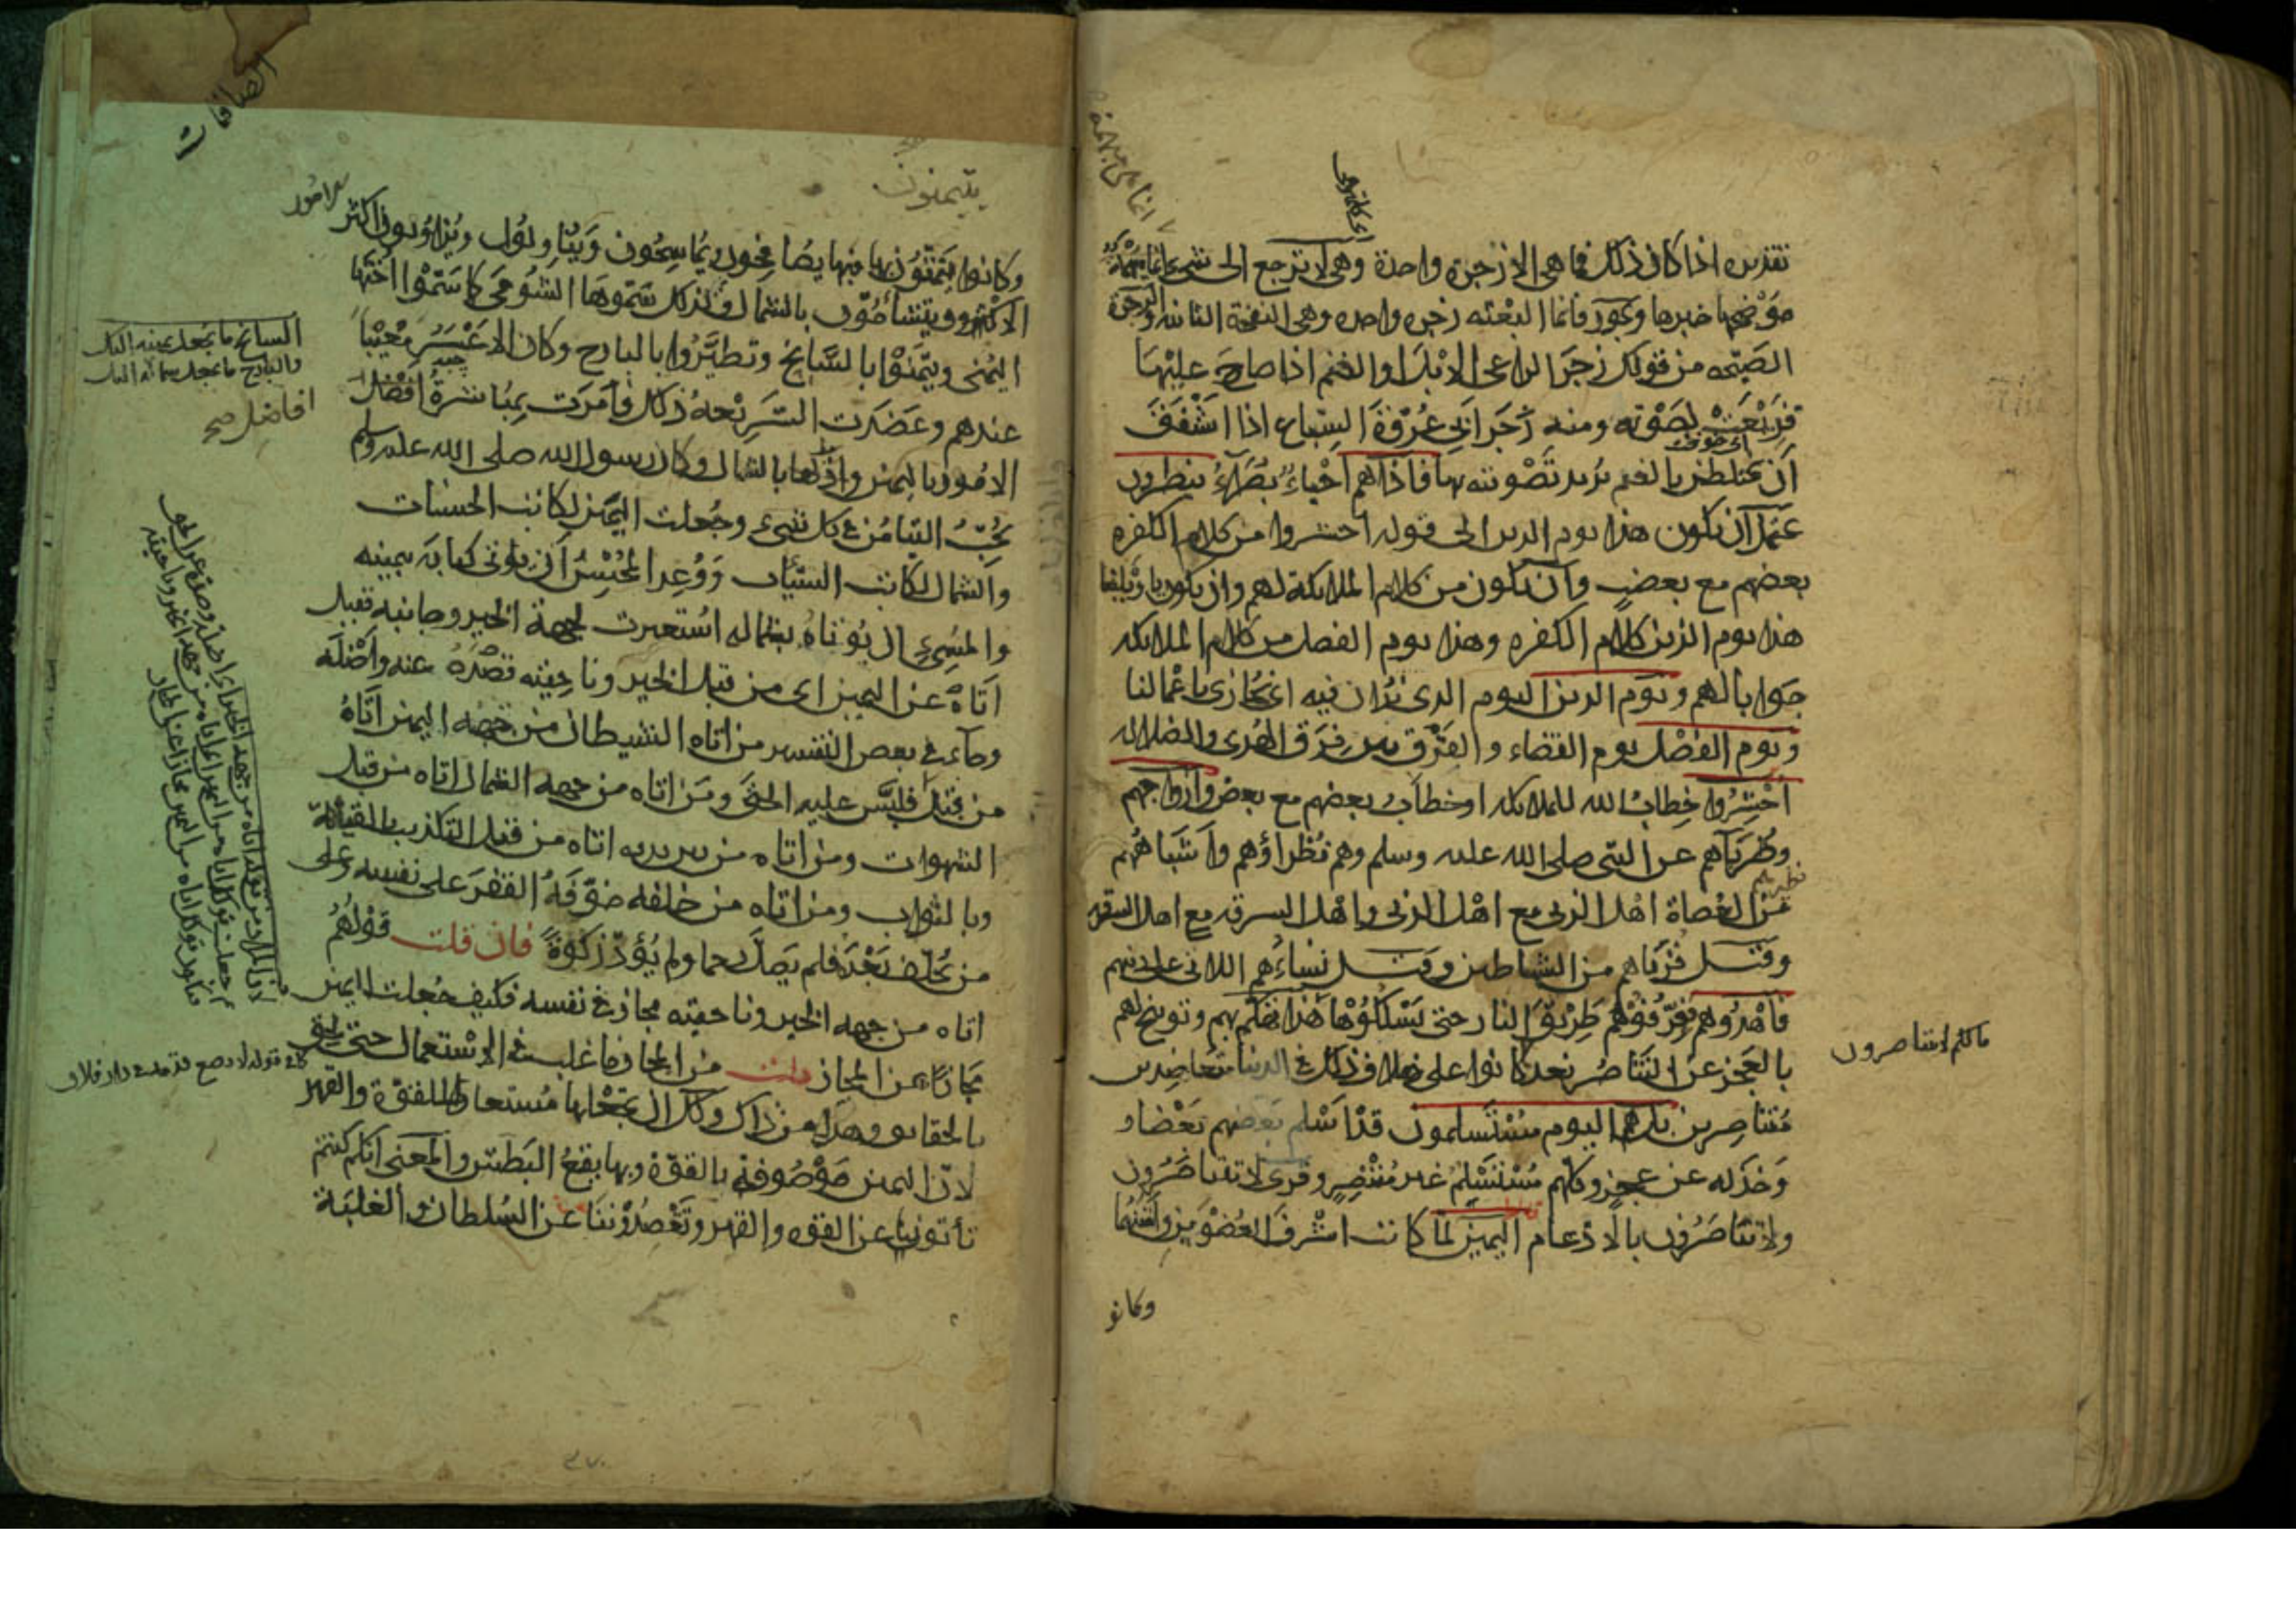 تقديره اذا كان ذلك فما هي الا زجرة واحدة وهي لا ترجع الى شيء انما مبهمة
موضحها خبرها ويجوز فانما البعثه زجره واحده وهي النفخة الثانيه والزجرة
الصيحه من قولك زجر الراعي الابل او الغنم اذا صاح عليها
فريعت لصوته ومنه زجر ابي عروة السباع اذا اشفق
أن يختلطن بالغنم يريد تصويته بها فاذا هم احياء بصراء ينظرون
يحتمل أن يكون هذا يوم الدين الى قوله احشروا من كلام الكفره
بعضهم مع بعض وأن يكون من كلام الملائكة لهم وان يكون يا ويلنا
هذا يوم الدين كلام الكفره وهذا يوم الفصل من كلام الملائكه
جوابا لهم ويوم الدين اليوم الذي ندان فيه اي نجازى باعمالنا
ويوم الفصل يوم القضاء والفرق بين فرق الهدى والضلاله
احشروا خطاب الله للملائكه او خطاب بعضهم مع بعض وازواجهم
وضرباهم عن النبي صلى الله عليه وسلم وهم نظراؤهم واشباههم
من العصاة اهل الزنى مع اهل الزنى واهل السرقه مع اهل السرقه
وقيل قرناهم من الشياطين وقيل نساءهم اللاتي على دينهم
فاهدوهم فعرفوهم طريق النار حتى يسلكوها هذا تهكم بهم وتوبيخ لهم
بالعجز عن التناصر بعد ما كانوا على خلاف ذلك في الدنيا متعاضدين
متناصرين بل هم اليوم مستسلمون قد اسلم بعضهم بعضا و
وخذله عن عجز وكلهم مستسلم غير منتصر وقرى لا تتناصرون
ولا تناصرون بالادغام اليمين لما كانت اشرف العضوين وامتنهما
وكانو
ما لكم لا تناصرون
الصافات
يتيمنون
وكانوا يتيمنون بها فبها يصافحون ويماسحون ويناولون ويتناولون ويزاولون اكثر
الامور
الامور ويتشاءمون بالشمال ولذلك سموها الشومى كما سموا اختها
اليمنى وتيمنوا بالسانح وتطيروا بالبارح وكان الاعسر معيبا
عندهم وعضدت الشريعه ذلك فامرت بمباشرة افضل
الامور باليمين واراذلها بالشمال وكان رسول الله صلى الله عليه وسلم
يحب التيامن في كل شيء وجعلت اليمين لكاتب الحسنات
والشمال لكاتب السيئات ووعد المحسن أن يؤتى كتابه بيمينه
والمسيء ان يؤتاه بشماله استعيرت لجهة الخير وجانبه فقيل
اتاه عن اليمين اى من قبل الخير وناحيته فصده عنه واضله
وجاء في بعض التفسير من اتاه الشيطان من جهه اليمين اتاه
من قبل فلبس عليه الحق ومن اتاه من جهه الشمال اتاه من قبل
الشهوات ومن اتاه من بين يديه اتاه من قبل التكذيب بالقيامة
وبالثواب ومن اتاه من خلفه خوفه الفقر على نفسه وعلى
من يخلف بعده فلم يصل رحما ولم يؤد زكوة فان قلت قولهم
اتاه من جهه الخير وناحيته مجاز في نفسه فكيف جعلت اليمين
مجازا عن المجاز قلت من المجاز ما غلب في الاستعمال حتى لحق
بالحقائق وهذا من ذاك ولك ان تجعلها مستعارة للقوة والقهر
لان اليمين موصوفة بالقوة وبها يقع البطش والمعنى انكم كنتم
تأتوننا عن القوه والقهر وتقصدوننا عن السلطان والغلبة
السانح ما يجعل يمينه اليك
والبارح ما يجعل شماله اليك
افاضل صح